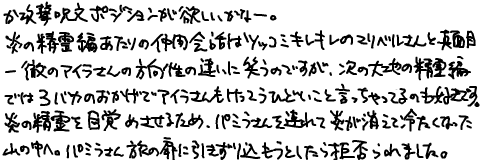 か攻撃呪文ポジションが欲しいかなー。
炎の精霊編あたりの仲間会話はツッコミキレキレのマリベルさんと、真面目
一徹のアイラさんの方向性の違いに笑うのですが、次の大地の精霊編
では3バカのおかげでアイラさんもけっこうひどいこと言っちゃってるの
炎の精霊を目覚めさせるため、パミラさんを連れて炎が消えて冷たくなった
山の中へ。パミラさん旅の扉に引きずり込もうとしたら拒否られました。